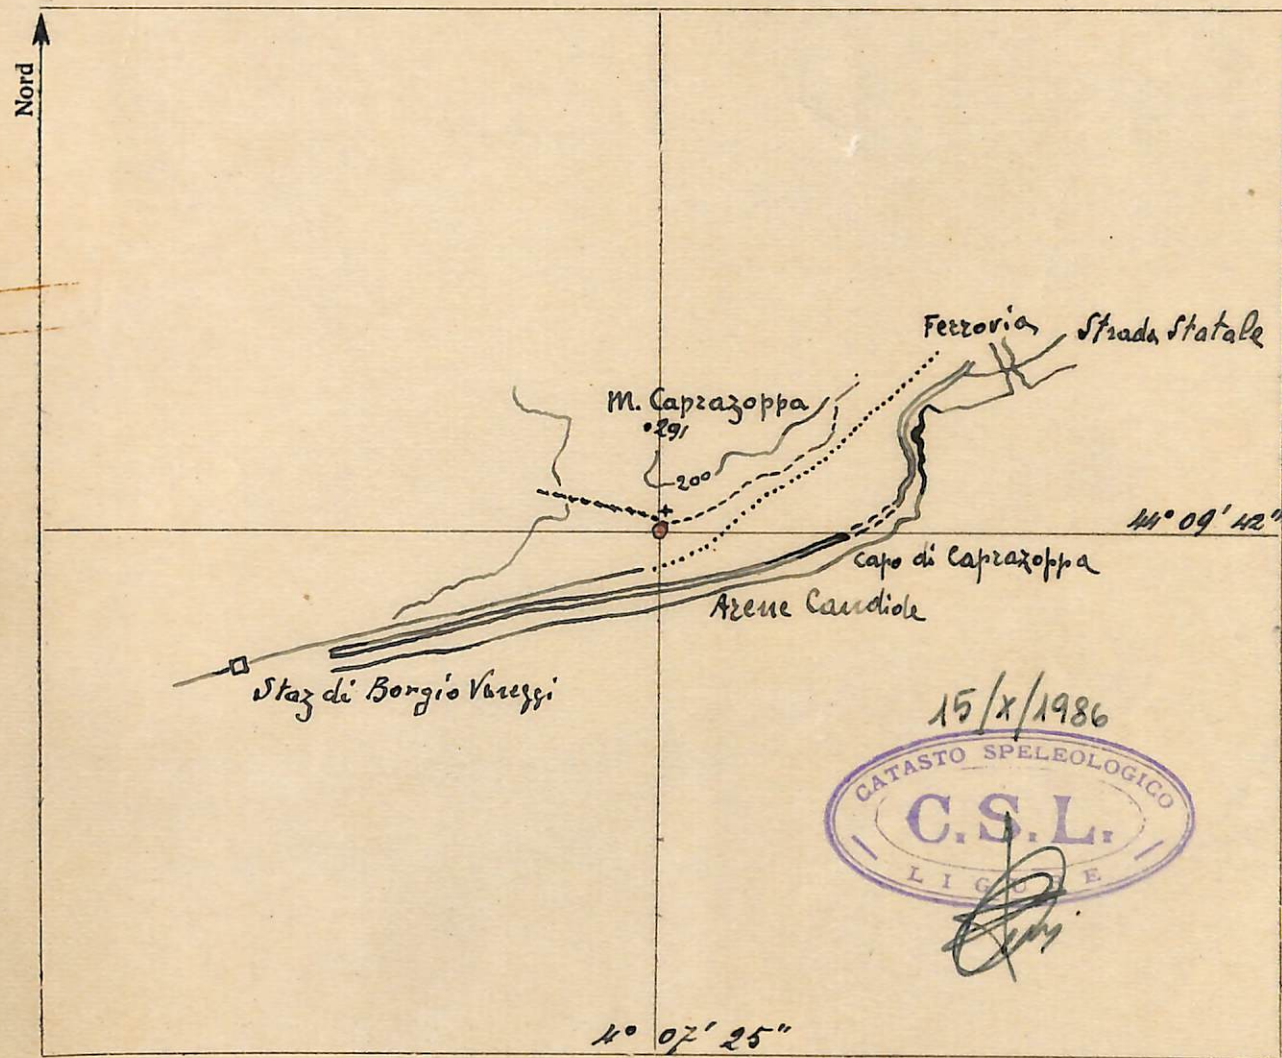 Nord
Ferrovia
Strada Statale
M. Caprazoppa
•291
200
44° 09' 42"
Capo di Caprazoppa
Arene Candide
Staz di Borgio Verezzi
15/X/1986
CATASTO SPELEOLOGICO
C.S.L.
LIGURE
4° 07' 25"